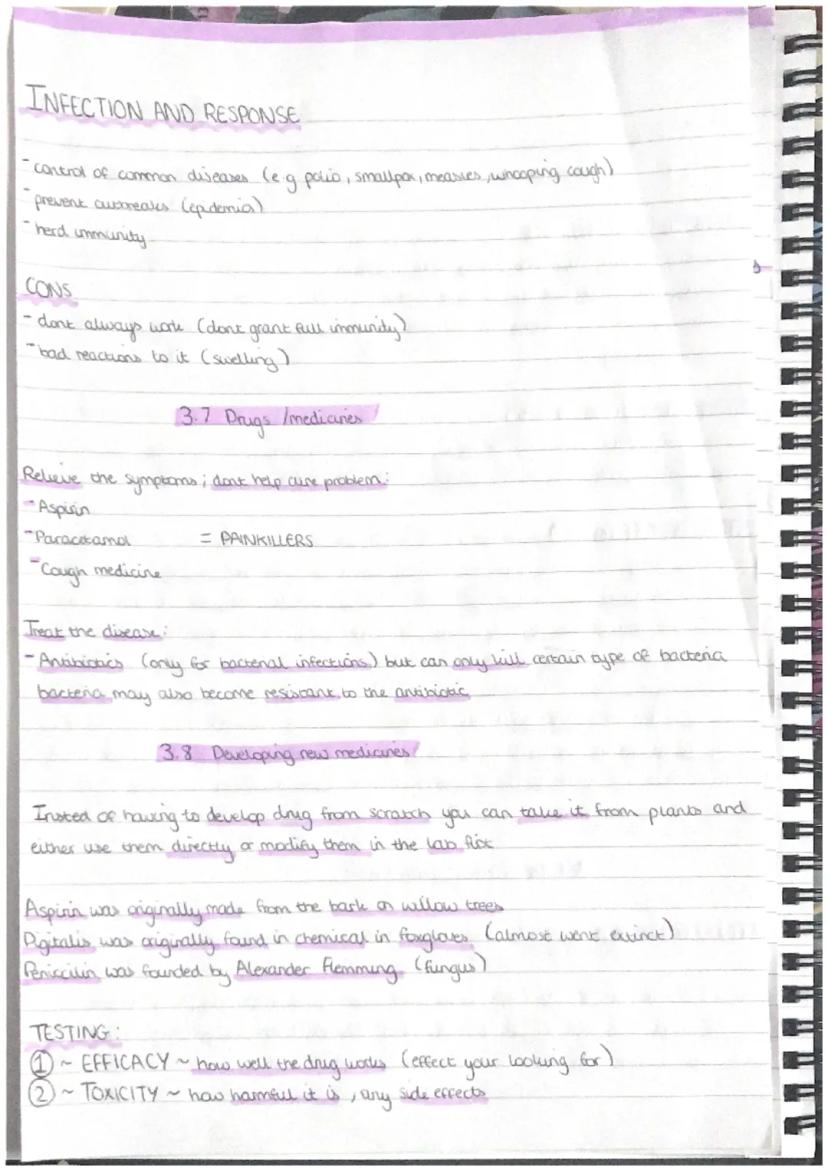 INFECTION AND RESPONSE
- control of common diseases (e.g polio, smallpox, measles, whooping cough)
- prevent outbreaks (epidemia)
- herd immunity
CONS
- dont always work (dont grant full immunity)
- bad reactions to it (swelling)
3.7 Drugs /medicines
Relieve the symptoms; dont help cure problem:
- Aspirin
- Paracetamol = PAINKILLERS
- Cough medicine
Treat the disease:
- Antibiotics (only for bacterial infections) but can only kill certain type of bacteria
bacteria may also become resistant to the antibiotic
3.8 Developing new medicines
Insted of having to develop drug from scratch you can take it from plants and
either use them directly or modify them in the lab first
Aspirin was originally made from the bark on willow trees
Digitalis was originally found in chemical in foxgloves (almost went extinct)
Peniscilin was founded by Alexander Flemming (fungus)
TESTING:
① ~ EFFICACY ~ how well the drug works (effect your looking for)
② ~ TOXICITY ~ how harmful it is, any side effects